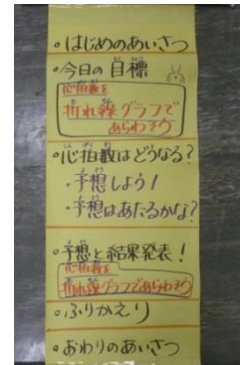 ・はじめのあいさつ
・今日の目標
心拍数を
折れ線グラフで
あらわそう
・心拍数はどうなる？
・予想しよう！
・予想はあたるかな？
・予想と結果発表！
心拍数を
折れ線グラフであらわそう
・ふりかえり
・おわりのあいさつ